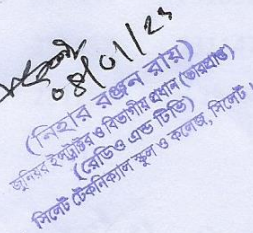 ০৪/০১/২৩
(নিহার রঞ্জন রায়)
জুনিয়র ইন্সট্রাক্টর ও বিভাগীয় প্রধান (ভারপ্রাপ্ত)
(রেডিও এন্ড টিভি)
সিলেট টেকনিক্যাল স্কুল ও কলেজ, সিলেট।